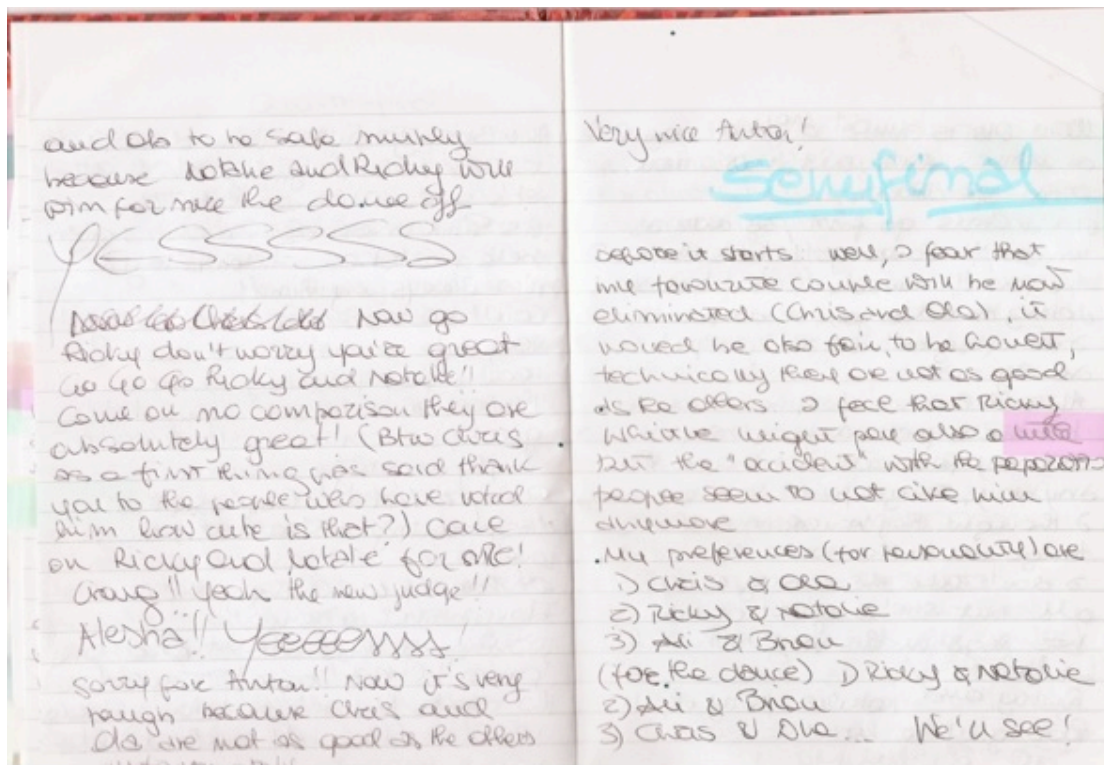 and Ola to be safe
because Natalie and Ricky will
win for me the dance off
YESSSSSS
Now go
Ricky don't worry you're great
Go Go Go Ricky and Natalie!!
Come on no comparison they are
absolutely great! (Btw Chris
as a first thing has said thank
you to the people who have voted
him how cute is that?) Come
on Ricky and Natalie for me!
Craig!! yeah the new judge!!
Alesha!! Yeeeeesssss!
sorry for Anton!! Now it's very
tough because Chris and
Ola are not as good as the others
Very nice Anton!
Semifinal
before it starts well, I fear that
my favourite couple will be now
eliminated (Chris and Ola), it
would be also fair, to be honest,
technically they are not as good
as the others I feel that Ricky
Whittle might also a
but the "accident" with the
people seem to not like him
anymore
My preferences (for personality) are
1) Chris & Ola
2) Ricky & Natalie
3) Ali & Brian
(for the dance) 1) Ricky & Natalie
2) Ali & Brian
3) Chris & Ola... We'll see!